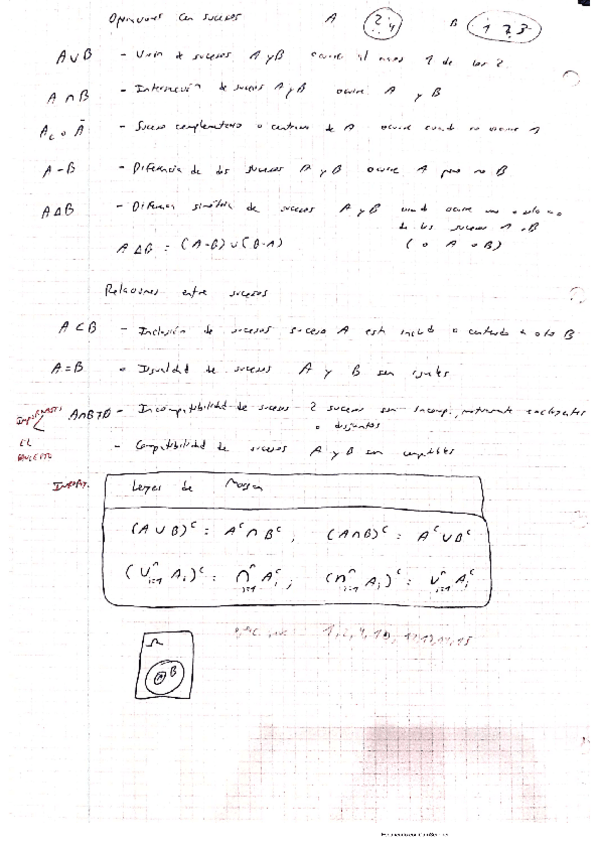 Operaciones con sucesos A 2 4 B 1 2 3
A∪B - Unión de sucesos A y B ocurre al menos 1 de los 2
A∩B - Intersección de sucesos A y B ocurre A y B
Ac o Ā - Suceso complementario o contrario de A ocurre cuando no ocurre A
A-B - Diferencia de dos sucesos A y B ocurre A pero no B
A∆B - Diferencia simétrica de sucesos A y B cuando ocurre uno o solo uno
de los sucesos A o B
A∆B = (A-B)∪(B-A) (o A o B)
Relaciones entre sucesos
A⊂B - Inclusión de sucesos suceso A está incluido o contenido en otro B
A=B Igualdad de sucesos A y B son iguales
IMPORTANTE - Incompatibilidad de sucesos - 2 sucesos son incomp. mutuamente excluyentes
o disjuntos
EL
- Compatibilidad de sucesos A y B son compatibles
IMPORT. Leyes de Morgan
(A∪B)ᶜ = Aᶜ∩Bᶜ, (A∩B)ᶜ = Aᶜ∪Bᶜ
(∪ⁿᵢ₌₁ Aᵢ)ᶜ = ∩ⁿᵢ₌₁ Aᵢᶜ, (∩ⁿᵢ₌₁ Aᵢ)ᶜ = ∪ⁿᵢ₌₁ Aᵢᶜ
Ω
B